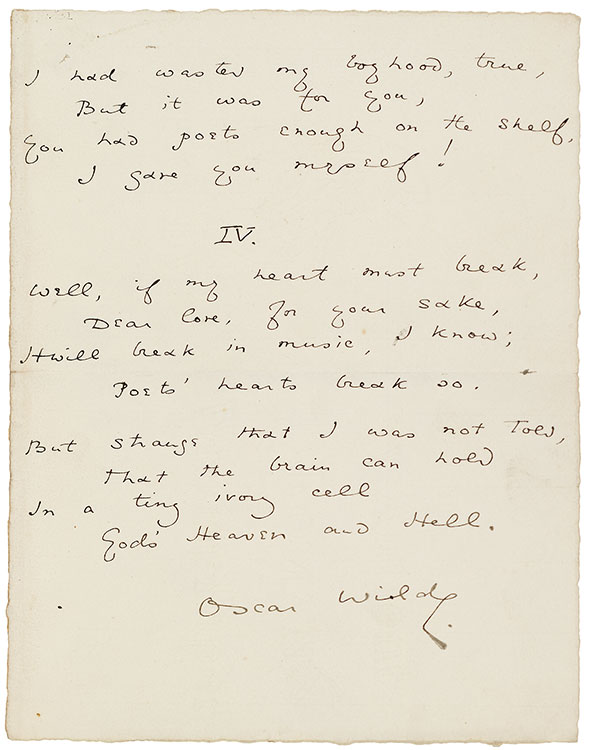 I had wasted my boyhood, true,
But it was for you,
You had poets enough on the shelf,
I gave you myself!
IV.
Well, if my heart must break,
Dear love, for your sake,
It will break in music, I know;
Poets' hearts break so.
But strange that I was not told,
That the brain can hold
In a tiny ivory cell
God's Heaven and Hell.
Oscar Wilde.